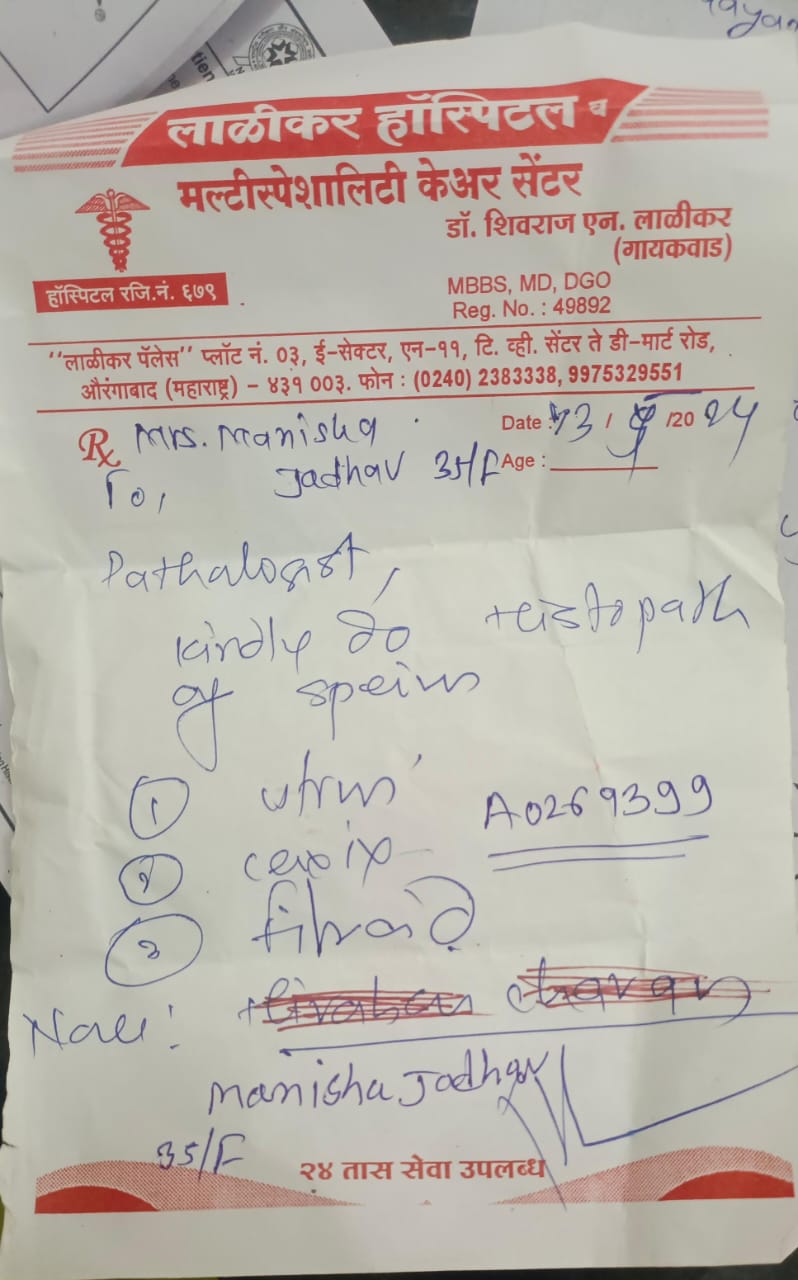 लाळीकर हॉस्पिटल व
मल्टीस्पेशालिटी केअर सेंटर
डॉ. शिवराज एन. लाळीकर
(गायकवाड)
हॉस्पिटल रजि.नं. ६७९
MBBS, MD, DGO
Reg. No. : 49892
"लाळीकर पॅलेस" प्लॉट नं. ०३, ई-सेक्टर, एन-११, टि. व्ही. सेंटर ते डी-मार्ट रोड,
औरंगाबाद (महाराष्ट्र) - ४३१ ००३. फोन : (0240) 2383338, 9975329551
Rx Mrs. Manisha Date : /20 24
Jadhav 35/F Age :
To,
Pathalogist,
kindly do Histopath
of
① utrus A0269399
② cervix
③ fibroid
Manisha Jadhav
35/F
२४ तास सेवा उपलब्ध